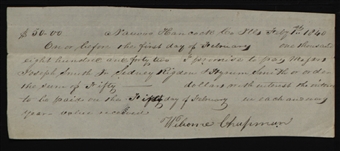 $ 50.00 Nauvoo Hancock Co Ills Feb 7th 1840
On or before the first day of February one thousand
eight hundred and forty two I promise to pay Messrs
Joseph Smith Sidney Rigdon & Hyrum Smith or order
the sum of Fifty dollars with interest the interest
to be paid on the day of February in each and every
year value received
Chapman